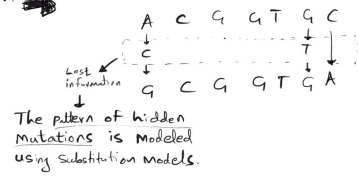 A C G G T G C
C T
Lost
information
G C G G T G A
The pattern of hidden
mutations is modeled
using substitution models.